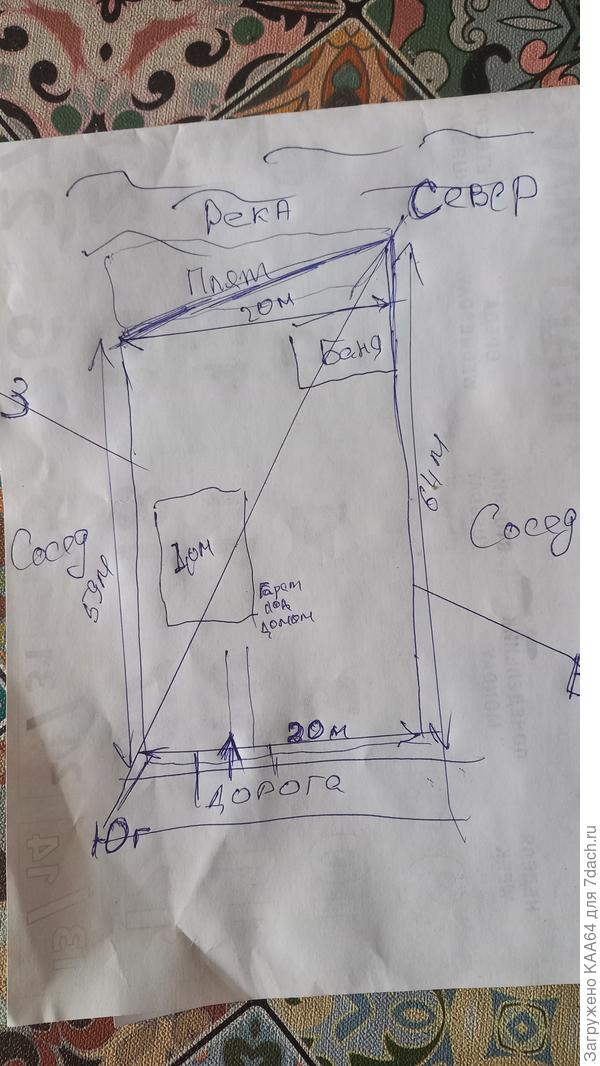 Север
Река
Пляж
20м
Баня
З
64м
Сосед
Сосед
Дом
59м
Гараж
под
домом
В
20м
Дорога
Юг
Загружено КАА64 для 7dach.ru